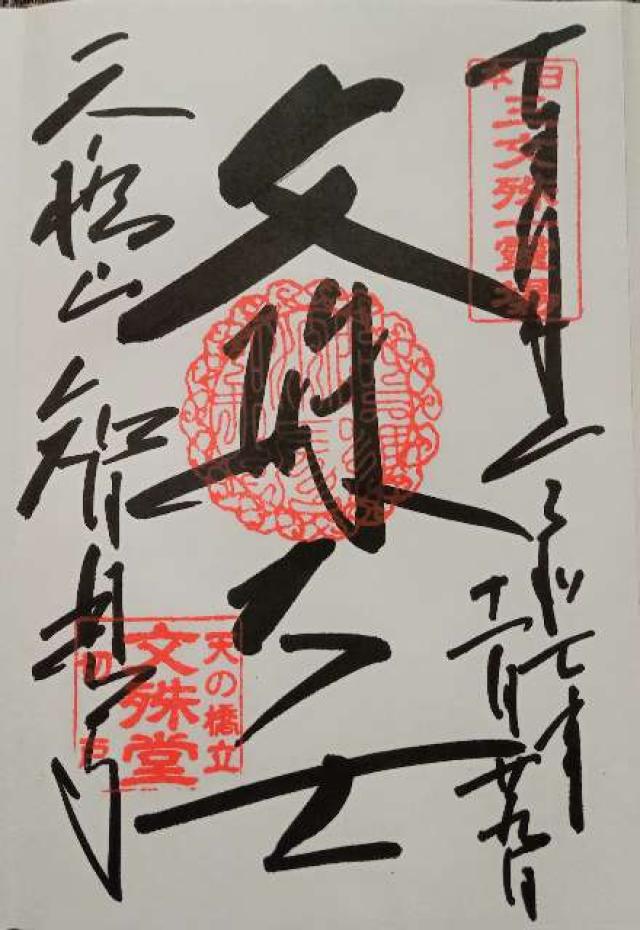 奉拝
日本
三文殊一霊場
令和七年
十一月廿九日
文殊大士
天の橋立
文殊堂
切戸
天橋山智恩寺